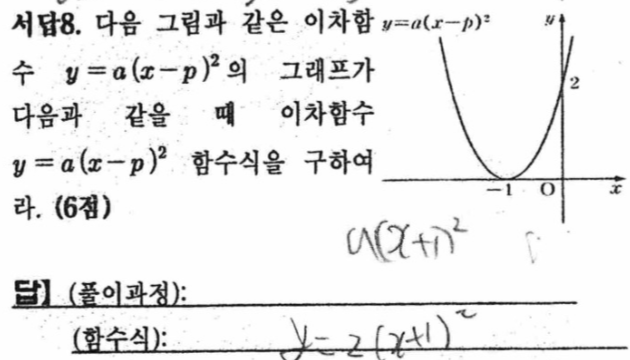 서답8. 다음 그림과 같은 이차함
수 y=a(x-p)²의 그래프가
다음과 같을 때 이차함수
y=a(x-p)² 함수식을 구하여
라. (6점)
y=a(x-p)²
y
2
-1 O x
a(x+1)²
답】 (풀이과정):
(함수식): y=2(x+1)²